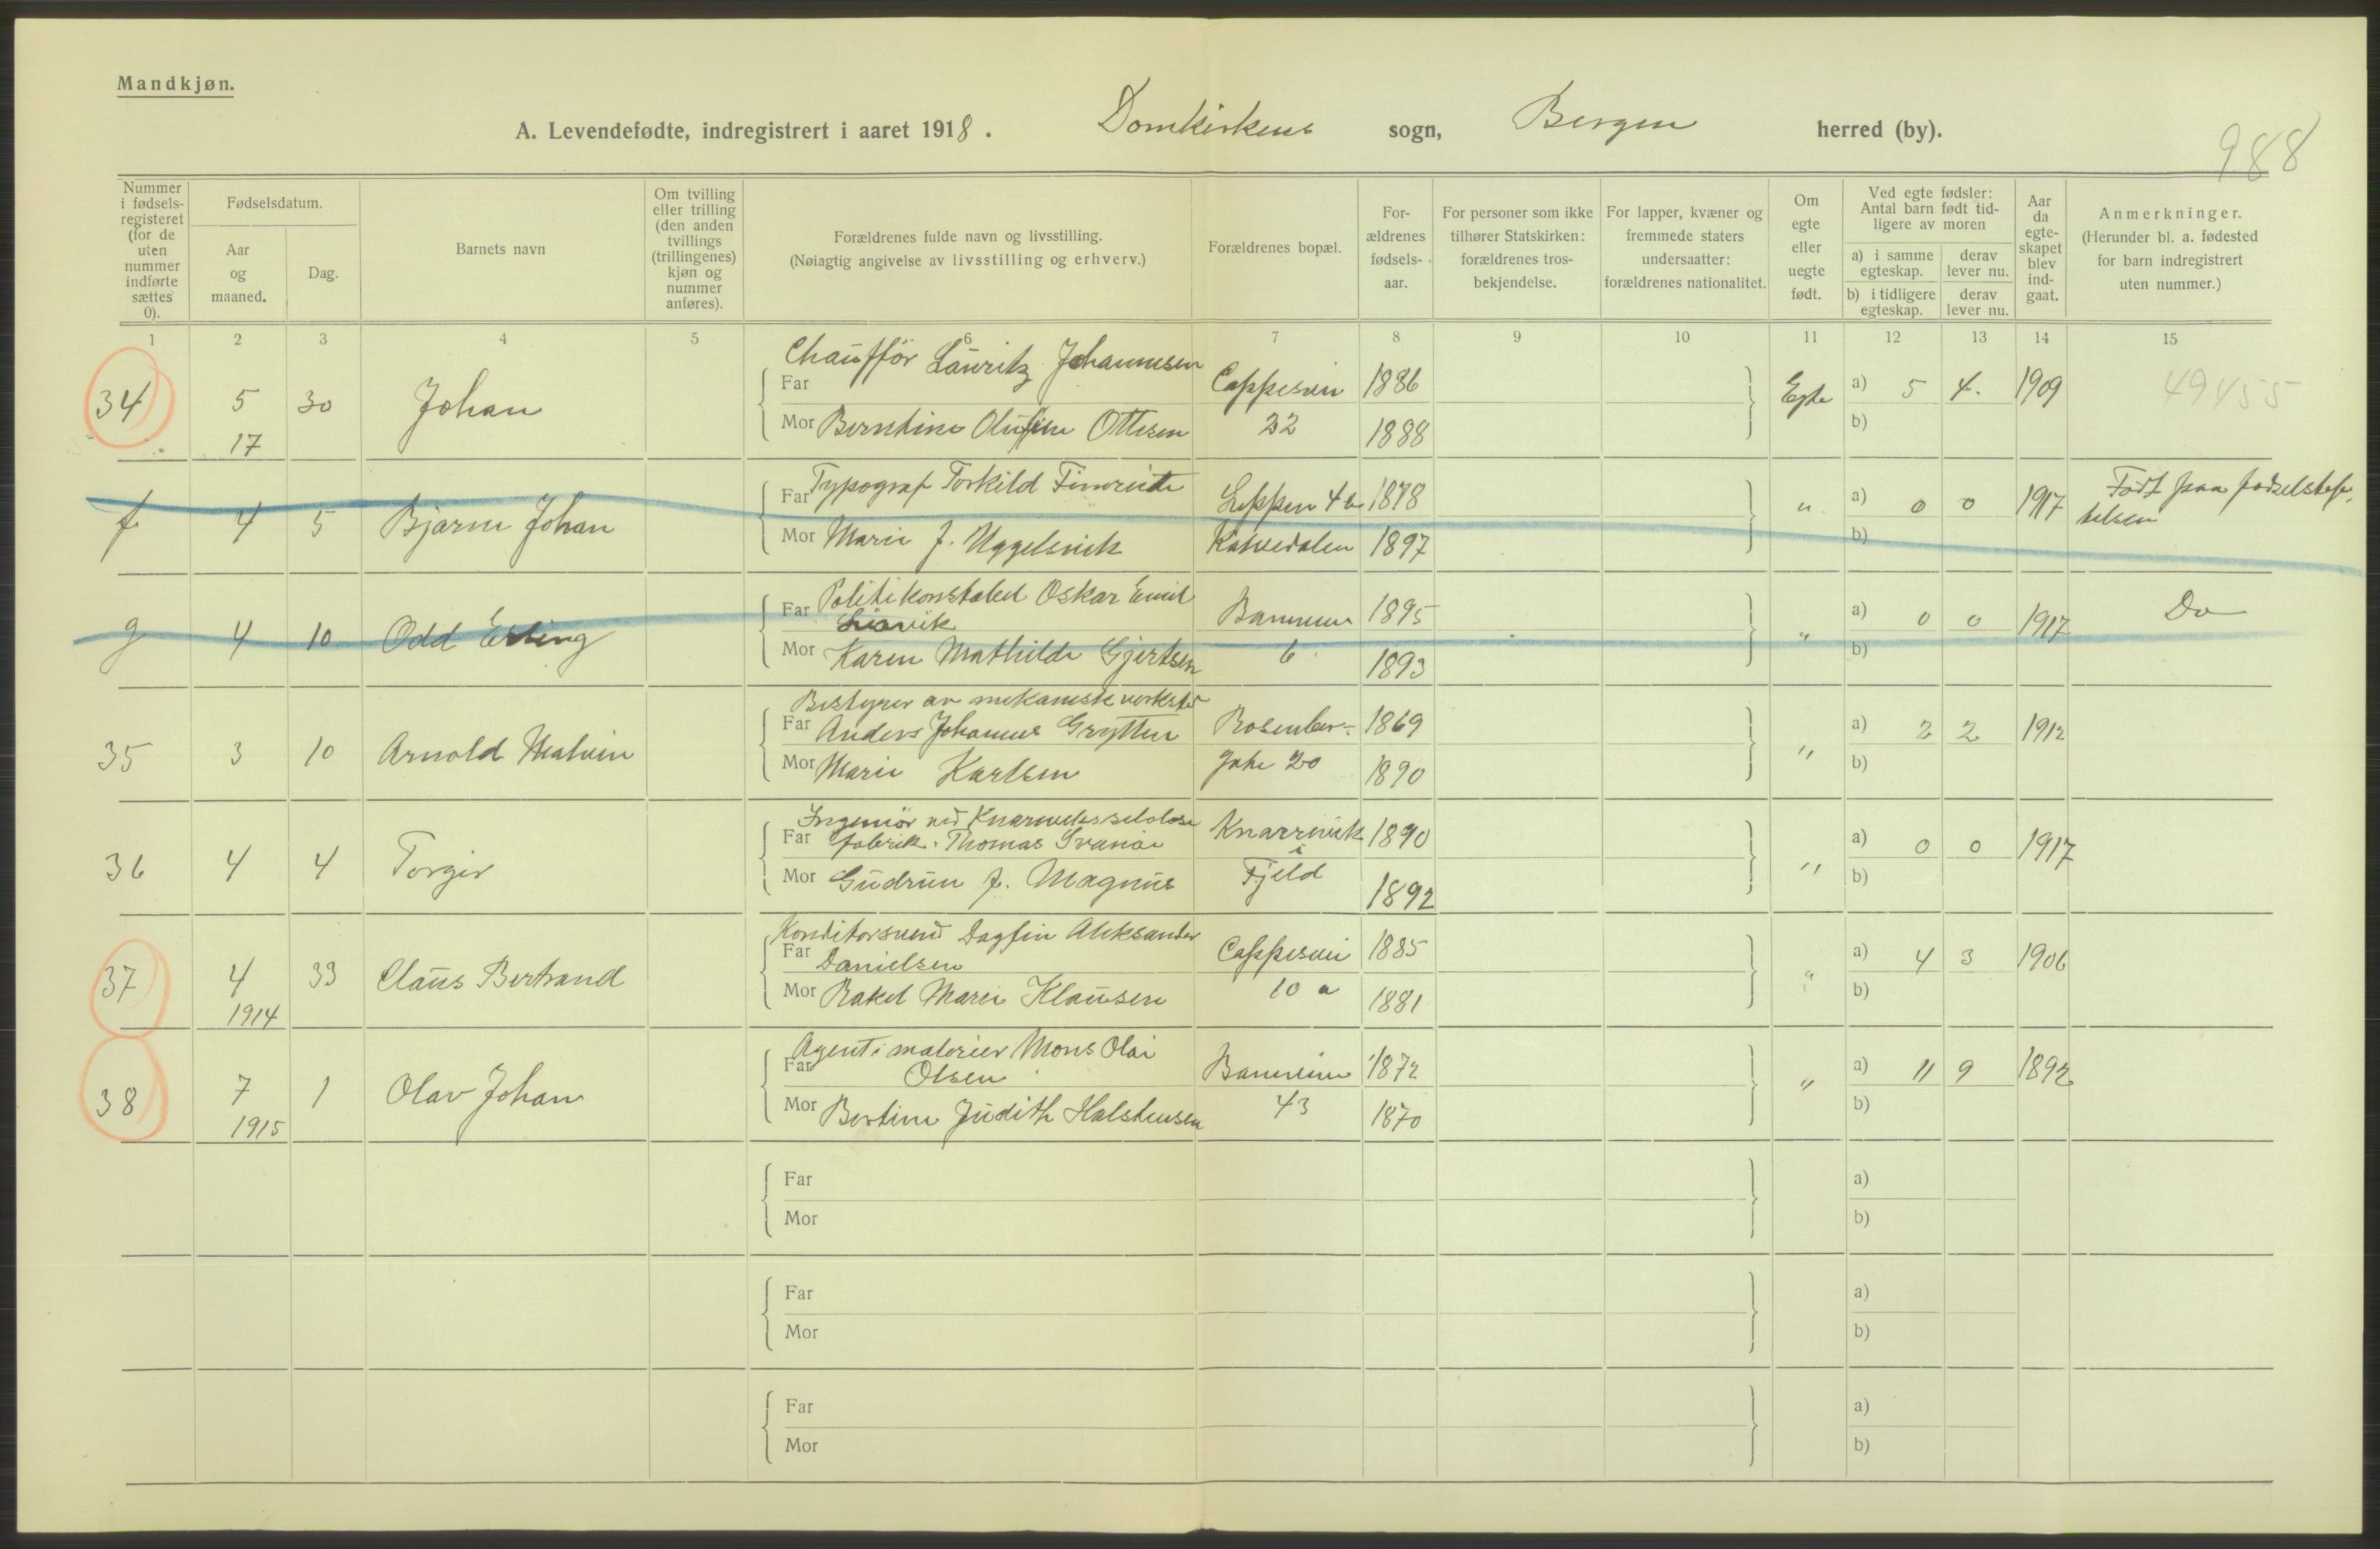 Mandkjøn.
A. Levendefødte, indregistrert i aaret 1918. Domkirkens sogn, Bergen herred (by).
988
Nummer i fødsels-registeret (for de uten nummer indførte sættes 0).
Fødselsdatum.
Aar og maaned.
Dag.
Barnets navn
Om tvilling eller trilling (den anden tvillings (trillingenes) kjøn og nummer anføres).
Forældrenes fulde navn og livsstilling.
(Nøiagtig angivelse av livsstilling og erhverv.)
Forældrenes bopæl.
For-ældrenes fødsels-aar.
For personer som ikke tilhører Statskirken: forældrenes tros-bekjendelse.
For lapper, kvæner og fremmede staters undersaatter: forældrenes nationalitet.
Om egte eller uegte født.
Ved egte fødsler: Antal barn født tid-ligere av moren
a) i samme egteskap. derav lever nu.
b) i tidligere egteskap. derav lever nu.
Aar da egte-skapet blev ind-gaat.
Anmerkninger.
(Herunder bl. a. fødested for barn indregistrert uten nummer.)
1 2 3 4 5 6 7 8 9 10 11 12 13 14 15
Chaufför Lauritz Johannesen
34 5 30 Johan Far Cappesvei 1886 Egte a) 5 4. 1909 49455
17 Mor Berntine Olufine Ottesen 22 1888 b)
f 4 5 Bjarne Johan Far Typograf Torkild Fimreite Leppen 4 b 1878 " a) 0 0 1917 Født paa fødselsstif-
Mor Marie f. Uggelsvik Kalvedalen 1897 b) telsen
g 4 10 Odd Erling Far Politikonstabel Oskar Emil Banneien 1895 " a) 0 0 1917 Do
Liavik
Mor Karen Mathilde Gjertsen 6 1893 b)
Bestyrer av mekanisk verksted
35 3 10 Arnold Malvin Far Anders Johannes Grytten Rosenber- 1869 " a) 2 2 1912
Mor Marie Karlsen gate 20 1890 b)
Ingeniör ved Knarreviks
36 4 4 Torgir Far fabrik. Thomas Svanøe Knarrevik 1890 " a) 0 0 1917
i
Mor Gudrun f. Magnus Fjeld 1892 b)
Konditorsvend Dagfin Aleksander
37 4 33 Claus Bertrand Far Danielsen Cappesvei 1885 " a) 4 3 1906
1914 Mor Rakel Marie Klausen 10 a 1881 b)
Agent i malerier Mons Olai
38 7 1 Olav Johan Far Olsen Banneien 1872 " a) 11 9 1892
1915 Mor Bertine Judith Halstensen 43 1870 b)
Far a)
Mor b)
Far a)
Mor b)
Far a)
Mor b)